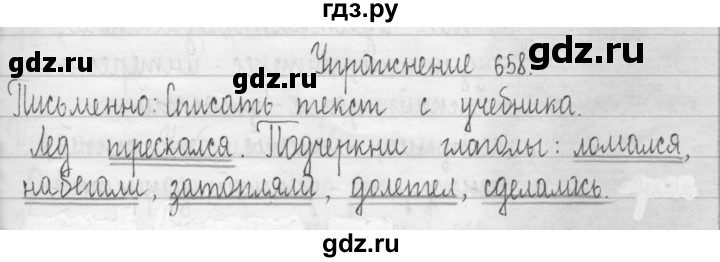 гдз.рy
Упражнение 658.
gdz.ru
gdz.ru
Письменно: Списать текст с учебника.
Лед трескался. Подчеркни глаголы: ломался,
набегали, затопляли, долетел, сделалась.
gdz.ru
gdz.ru